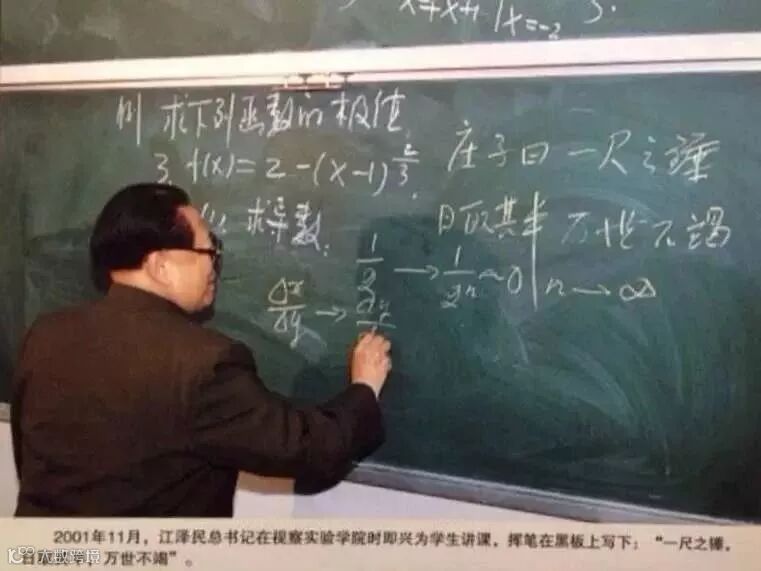 x=-2 3.
例 求下列函数的极值
3. f(x)=2-(x-1)^{2/3}.
求导数:
庄子曰 一尺之锤
日取其半 万世不竭
1/2 → 1/2ⁿ ~ 0 | n → ∞
Δx/Δy →
2001年11月,江泽民总书记在视察实验学院时即兴为学生讲课,挥笔在黑板上写下:“一尺之锤,
日取其半,万世不竭”。
大数跨境